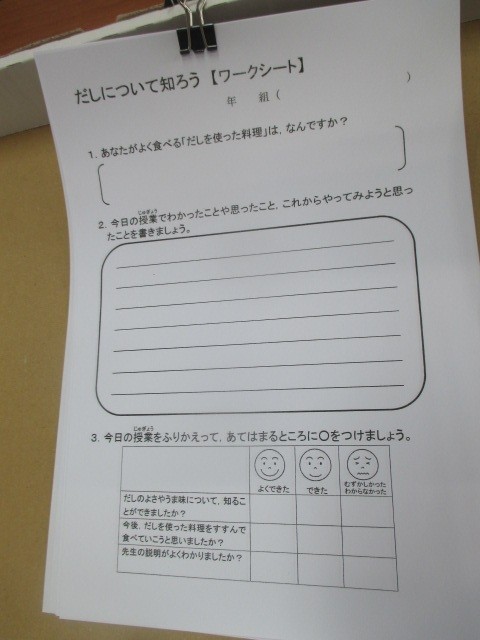 だしについて知ろう【ワークシート】
年 組( )
1. あなたがよく食べる「だしを使った料理」は,なんですか?
じゅぎょう
2. 今日の授業でわかったことや思ったこと,これからやってみようと思っ
たことを書きましょう。
じゅぎょう
3. 今日の授業をふりかえって,あてはまるところに〇をつけましょう。
よくできた できた むずかしかった
わからなかった
だしのよさやうま味について,知るこ
とができましたか?
今後,だしを使った料理をすすんで
食べていこうと思いましたか?
先生の説明がよくわかりましたか?